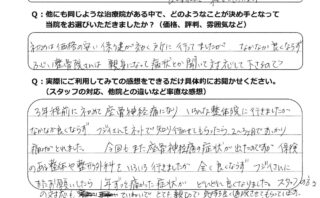 Q：他にも同じような治療院がある中で、どのようなことが決め手となって
当院をお選びいただきましたか？（価格、評判、雰囲気など）
初めは価格の安い保険が効く所に行ってましたが なかなか良くならず
ふじい整骨院さんは 親身になって症状とか聞いて対応して下さるので
Q：実際にご利用してみての感想をできるだけ具体的にお聞かせください。
（スタッフの対応、他院との違いなど率直な感想）
3年程前に初めて 座骨神経痛になり いろんな整体院に行きましたが
なかなか良くならず フジイさんをネットで知り 行ってもらったら 2〜3回で
助けがとれました 今回もまた座骨神経痛の症状が出たので 保険
のある整体や整形外科をいろいろ行きましたが 全く良くならず フジイさんに
またお願いしたら 1年ずっと痛かった症状が どんどん良くなりました スタッフの
の対応も